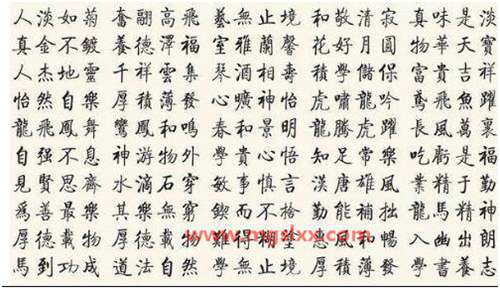 人淡如菊 奮翮高飛 藝無止境 和敬清寂 真味是淡
真金不鍍 養德澤福 室雅蘭馨 花好月圓 物華天寶
人杰地靈 千祥雲集 琴酒相壽 積學儲保 富貴吉祥
怡然自樂 厚積薄發 心曠神怡 虎嘯龍吟 鳶飛魚躍
龍飛鳳舞 鸞鳳和鳴 春和景明 龍騰虎躍 長風萬裏
自强不息 神游物外 學貴心悟 知足常樂 吃虧是福
見賢思齊 水滴石穿 敏事慎言 漢唐雄風 業精于勤
爲善最樂 其樂無窮 鍥而不捨 勤能補拙 龍馬精神
厚德載物 厚德載物 難得糊 風和暢 入幽出朗
馬到功成 道法自然 學無止境 厚積薄發 學書養志
www.mgslxx.com